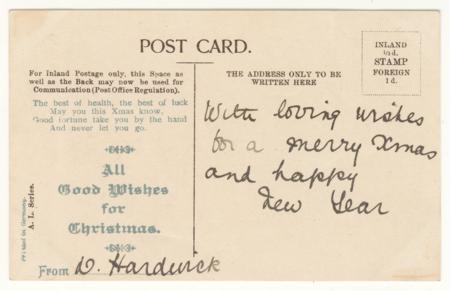 POST CARD.
INLAND
½d.
STAMP
FOREIGN
1d.
For Inland Postage only, this Space as
well as the Back may now be used for
Communication (Post Office Regulation).
THE ADDRESS ONLY TO BE
WRITTEN HERE
The best of health, the best of luck
May you this Xmas know,
Good fortune take you by the hand
And never let you go.
All
Good Wishes
for
Christmas.
From D. Hardwick
With loving wishes
for a merry Xmas
and happy
New Year
Printed in Germany.
A. L. Series.